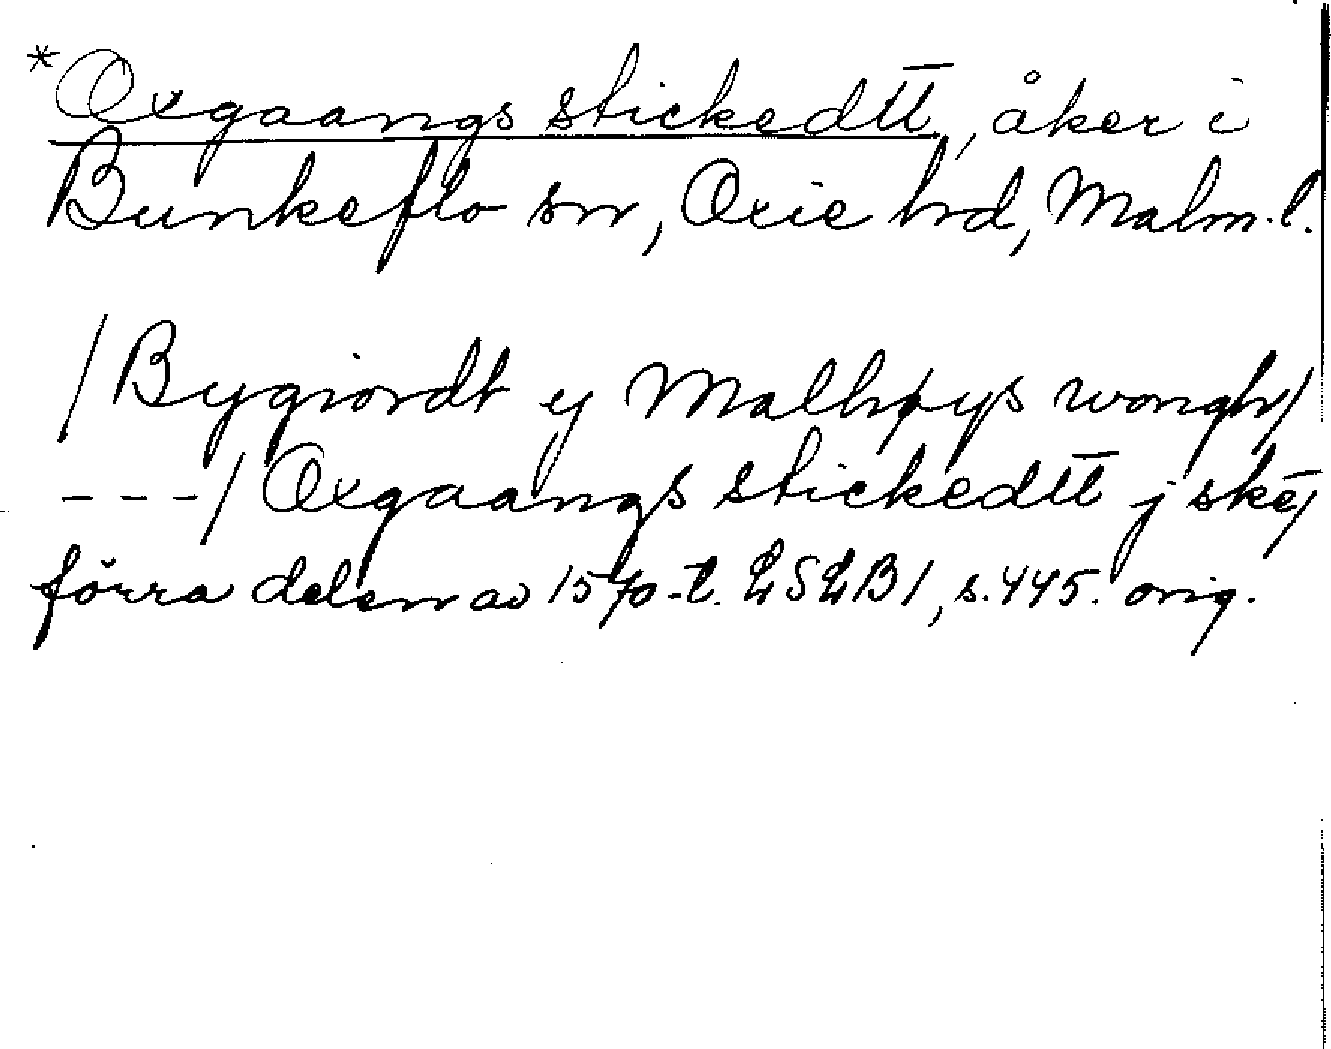 *Oxgaangs stickedtt, åker i
Bunkeflo sn, Oxie hd, Malm.l.
/Bygiordt y Malhpys wongh/
---/Oxgaangs stickedtt j ske/
förra delen av 1570-t. LSLB1, s.445. orig.